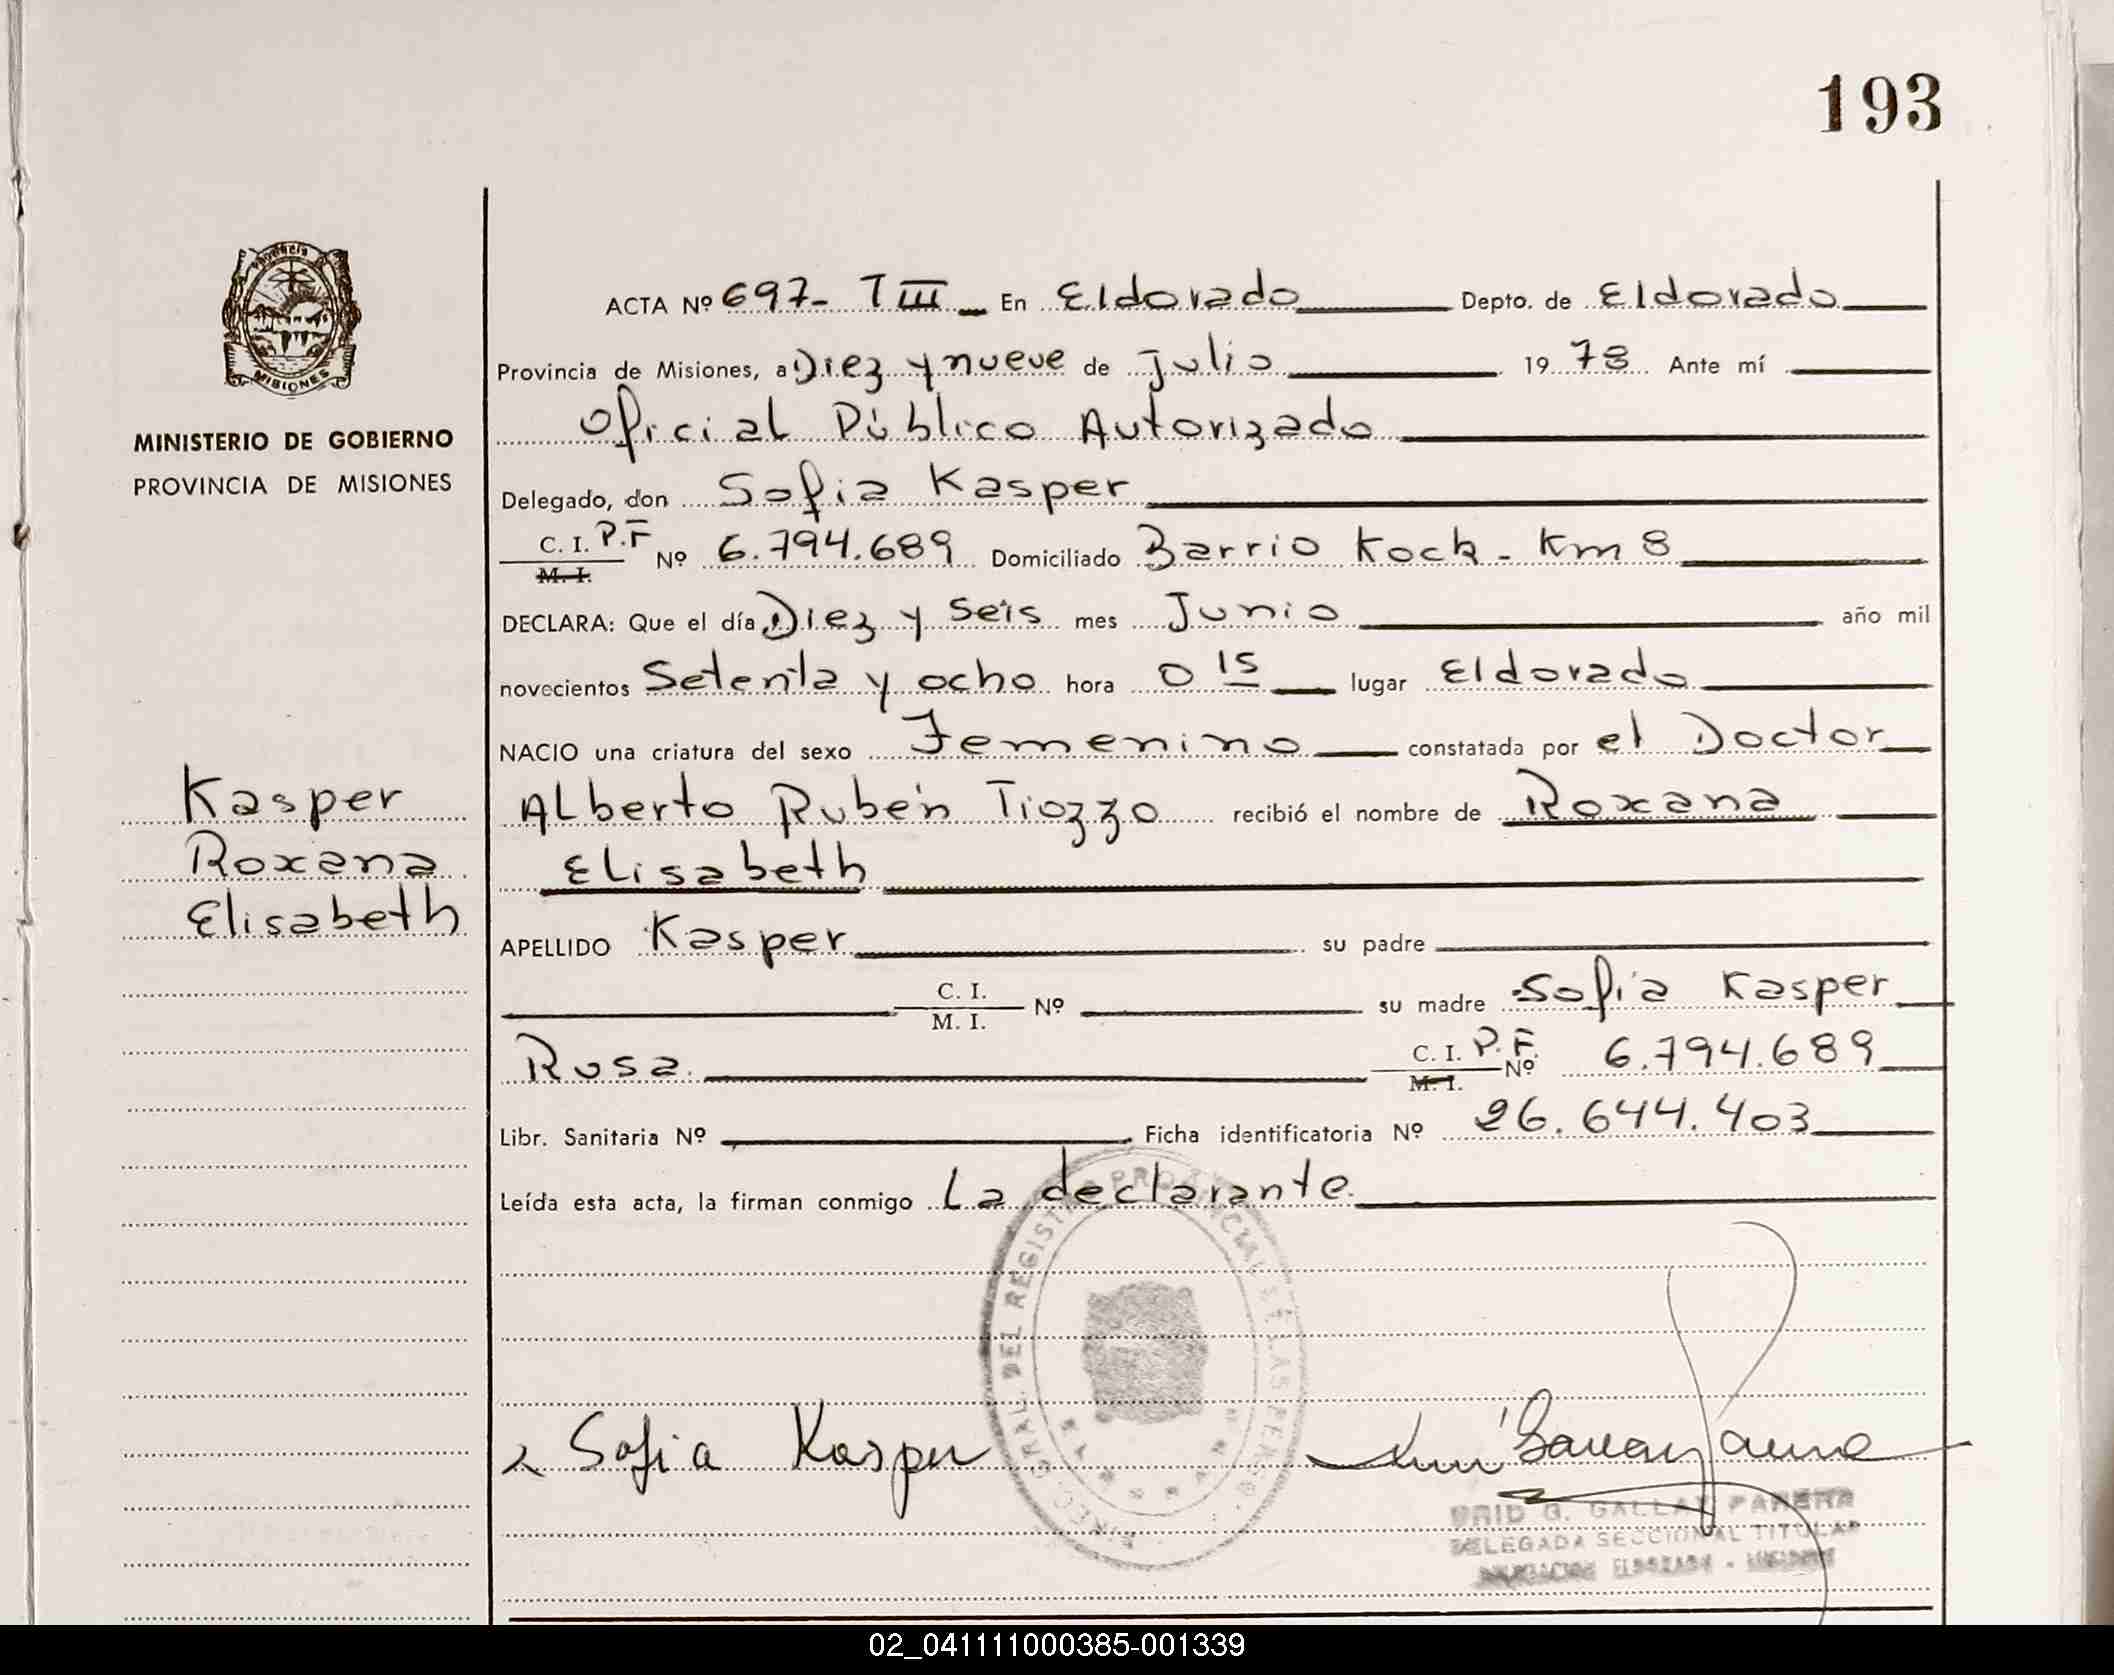 193
ACTA Nº 697- T III En Eldorado Depto. de Eldorado
Provincia de Misiones, a Diez y nueve de Julio 19 78 Ante mí
Oficial Público Autorizado
MINISTERIO DE GOBIERNO
PROVINCIA DE MISIONES
Delegado, don Sofia Kasper
C. I. P.F Nº 6.794.689 Domiciliado Barrio Kock - Km 8
M. I.
DECLARA: Que el día Diez y Seis mes Junio año mil
novecientos Setenta y ocho hora 0 15 lugar Eldorado
NACIO una criatura del sexo Femenino constatada por el Doctor
Kasper
Roxana
Elisabeth
Alberto Rubén Tiozzo recibió el nombre de Roxana
Elisabeth
APELLIDO Kasper su padre
C. I. Nº su madre Sofia Kasper
M. I.
Rosa C. I. P.F. Nº 6.794.689
M. I.
Libr. Sanitaria Nº Ficha identificatoria Nº 26.644.403
Leída esta acta, la firman conmigo La declarante.
Sofia Kasper
G. GALLAY PARERA
DELEGADA SECCIONAL TITULAR
MISIONES
02_041111000385-001339